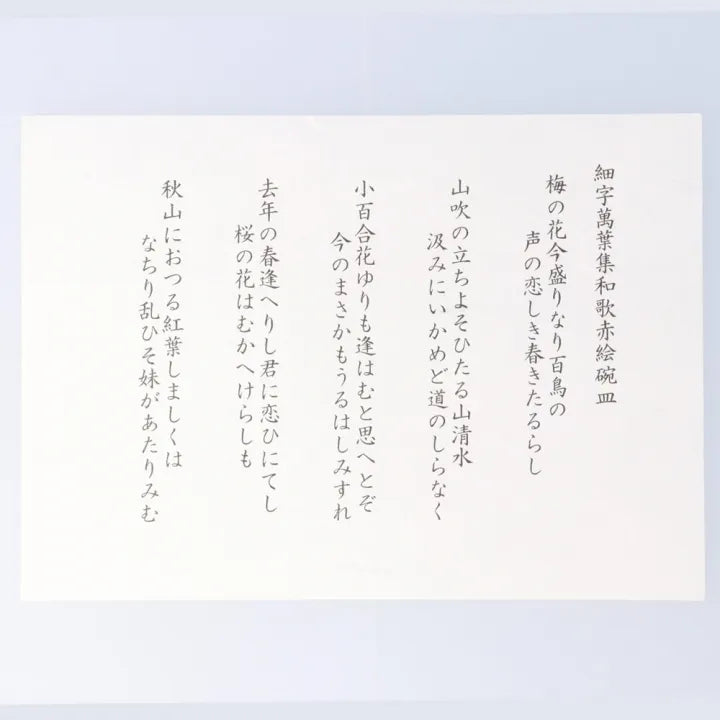 細字萬葉集和歌赤絵碗皿
梅の花今盛りなり百鳥の
声の恋しき春きたるらし
山吹の立ちよそひたる山清水
汲みにいかめど道のしらなく
小百合花ゆりも逢はむと思へとぞ
今のまさかもうるはしみすれ
去年の春逢へりし君に恋ひにてし
桜の花はむかへけらしも
秋山におつる紅葉しましくは
なちり乱ひそ妹があたりみむ